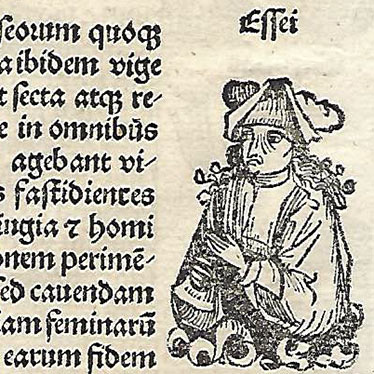 Essei
seorum quoqꝫ
aibidem vige
t secta atqꝫ re-
e in omnibꝰ
agebant vi-
s fastidientes
iugia ⁊ homi
onem perimē-
sed cauendam
iam feminarū
earum fidem